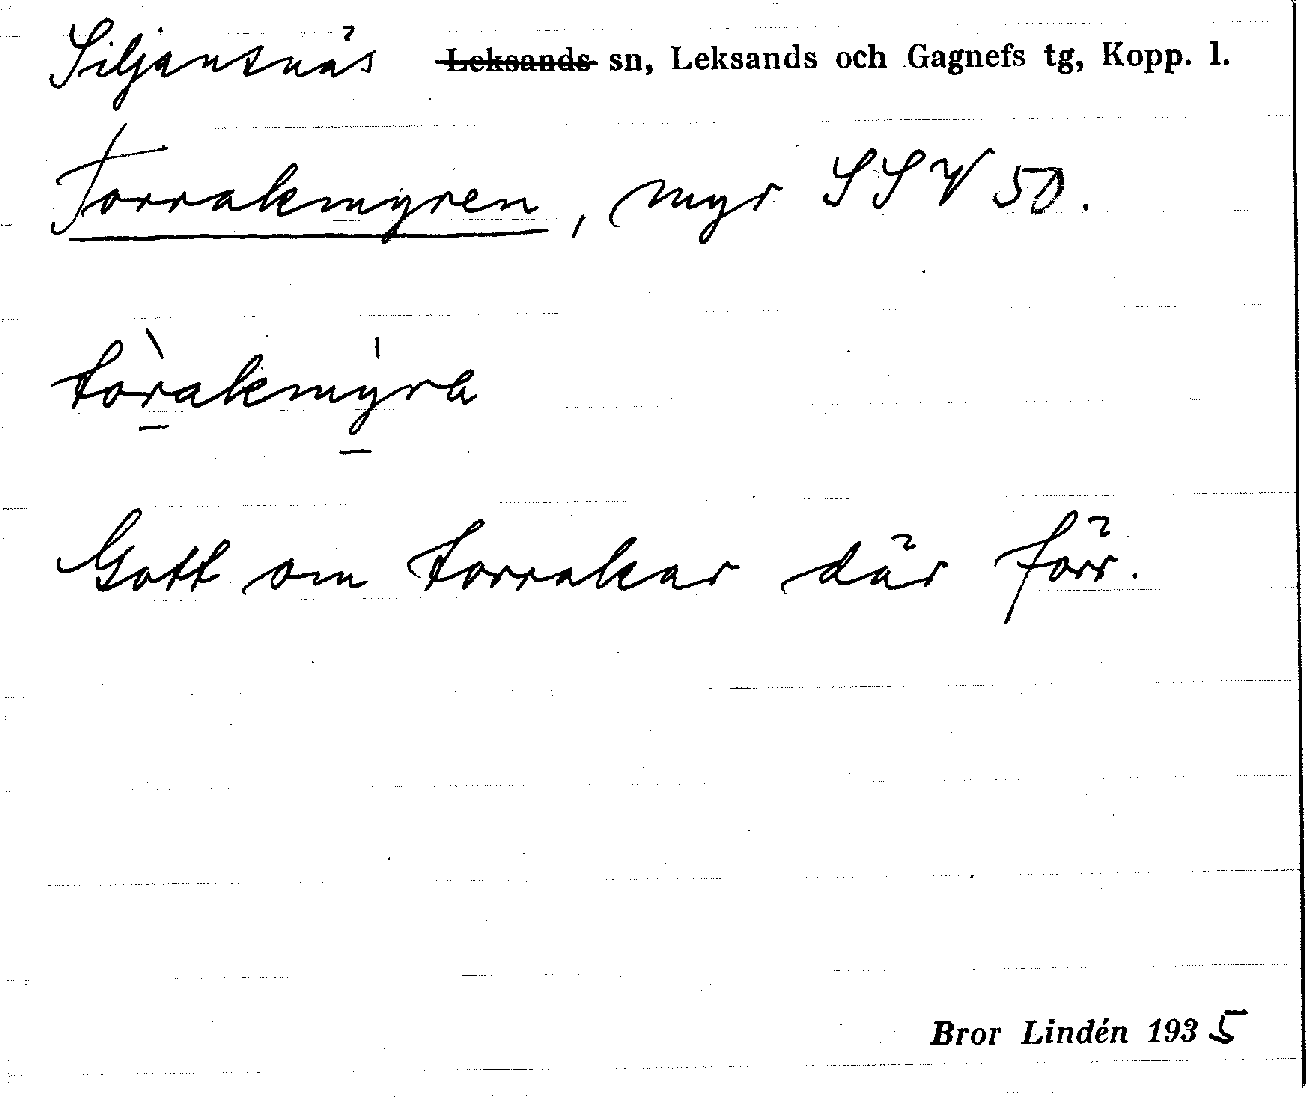 Siljansnäs Leksands sn, Leksands och Gagnefs tg, Kopp. l.
Torrakmyren, myr SSV 50.
tòrakmýra
Gott om torrakar där förr.
Bror Lindén 1935